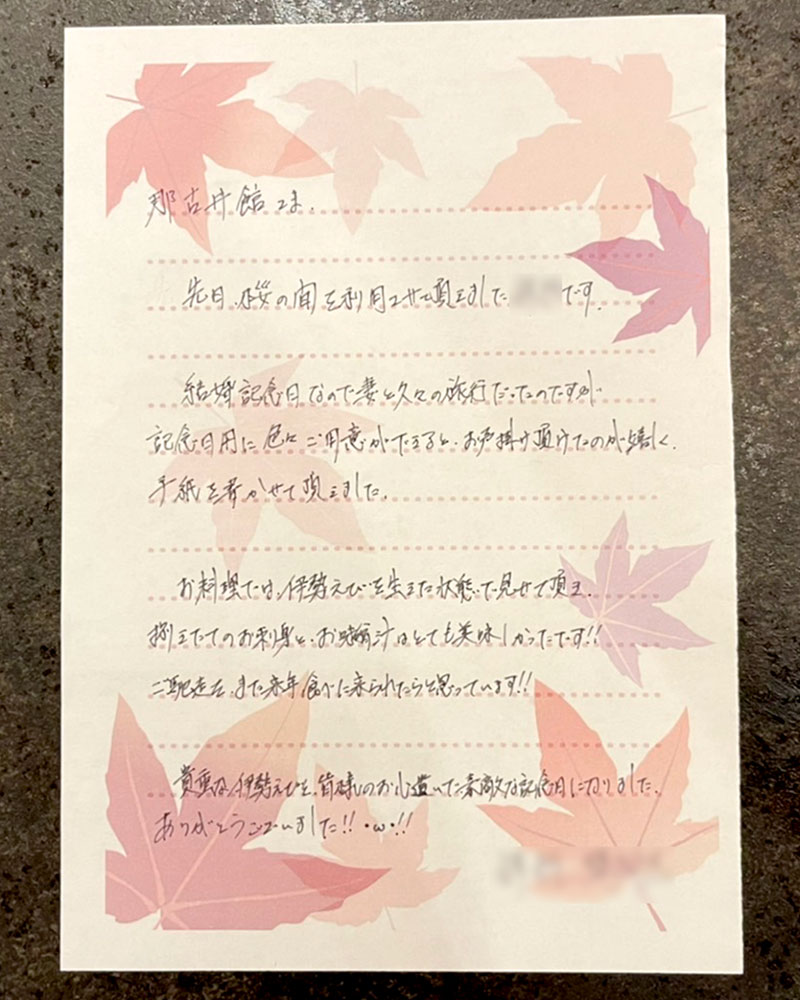 那古井館さま.
先日、の間を利用させて頂きました です.
結婚記念日なので妻と久々の旅行だったのですが
記念日用に色々ご用意がださると、お声掛け頂けたのが嬉しく、
手紙を書かせて頂きました.
お料理では、伊勢えびを生きた状態で見せて頂き、
捌きたてのお刺身と、お味噌汁はとても美味しかったです!!
ご馳走を、また来年食べに来られたらと思っています!!
貴重な伊勢えびと、皆様のお心遣いで素敵な記念日になりました.
ありがとうございました!!・ω・!!